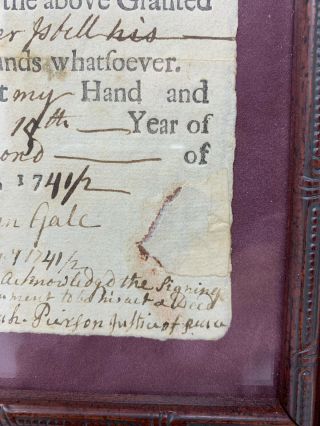 the above Granted
er Isbell his
ands whatsoever.
my Hand and
15th Year of
ond of
1741/2
n Gale
1741/2
acknowledgd the Signing
ument to be his act & Deed
ah Pierson Justice of peace